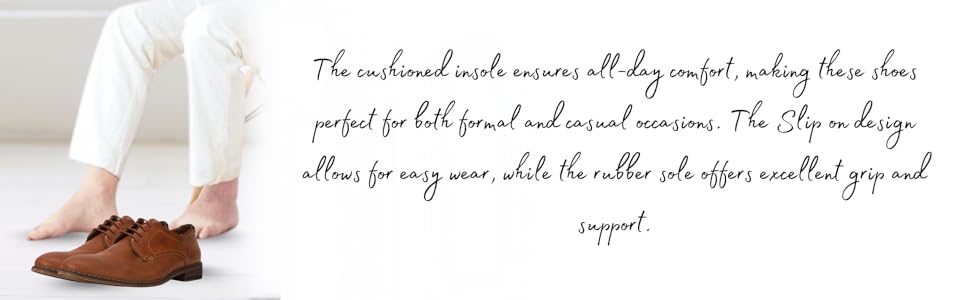 The cushioned insole ensures all-day comfort, making these shoes
perfect for both formal and casual occasions. The Slip on design
allows for easy wear, while the rubber sole offers excellent grip and
support.